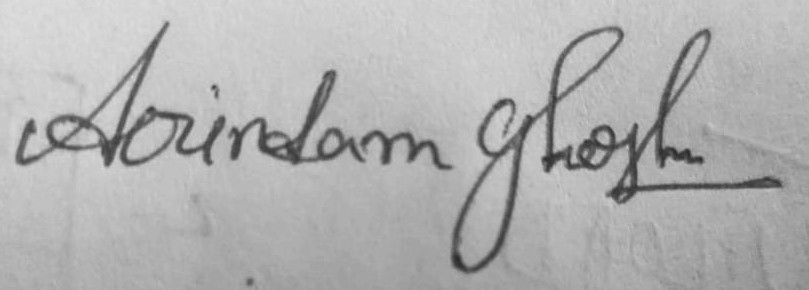 Arindam Ghosh